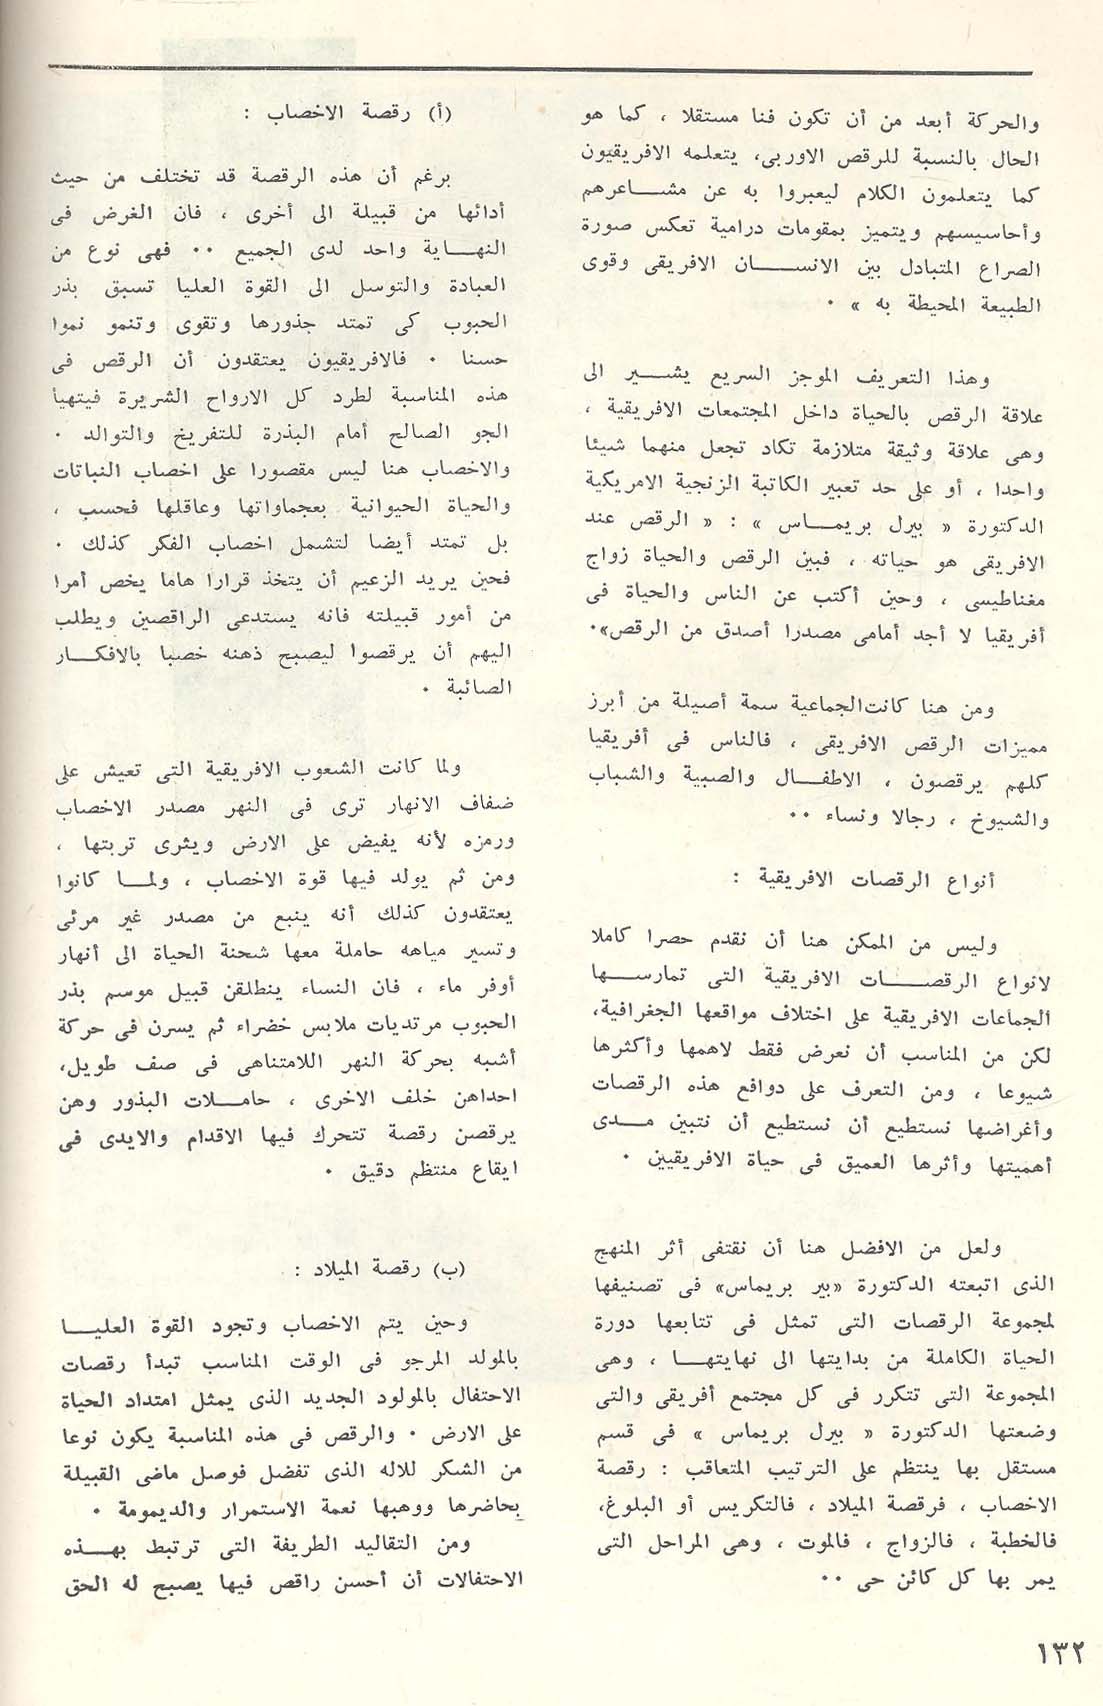 والحركة أبعد من أن تكون فنا مستقلا ، كما هو
الحال بالنسبة للرقص الاوربى، يتعلمه الافريقيون
كما يتعلمون الكلام ليعبروا به عن مشـــاعرهم
وأحاسيسهم ويتميز بمقومات درامية تعكس صورة
الصراع المتبادل بين الانســـان الافريقى وقوى
الطبيعة المحيطة به » ٠
وهذا التعريف الموجز السريع يشـــير الى
علاقة الرقص بالحياة داخل المجتمعات الافريقية ،
وهى علاقة وثيقة متلازمة تكاد تجعل منهما شيئا
واحدا ، أو على حد تعبير الكاتبة الزنجية الامريكية
الدكتورة « بيرل بريمـــاس » : « الرقص عند
الافريقى هو حياته ، فبين الرقص والحياة زواج
مغناطيسى ، وحين أكتب عن الناس والحياة فى
أفريقيا لا أجد أمامى مصدرا أصدق من الرقص»٠
ومن هنا كانت الجماعية سمة أصيلة من أبرز
مميزات الرقص الافريقى ، فالناس فى أفريقيا
كلهم يرقصون ، الاطفـــال والصبية والشباب
والشيوخ ، رجالا ونساء ٠٠
أنواع الرقصات الافريقية :
وليس من الممكن هنا أن نقدم حصرا كاملا
لانواع الرقصـــات الافريقية التى تمارســـها
الجماعات الافريقية على اختلاف مواقعها الجغرافية،
لكن من المناسب أن نعرض فقط لاهمها وأكثرها
شيوعا ، ومن التعرف على دوافع هذه الرقصات
وأغراضها نستطيع أن نستطيع أن نتبين مـــدى
أهميتها وأثرها العميق فى حياة الافريقيين ٠
ولعل من الافضل هنا أن نقتفى أثر المنهج
الذى اتبعته الدكتورة «بير بريماس» فى تصنيفها
لمجموعة الرقصات التى تمثل فى تتابعها دورة
الحياة الكاملة من بدايتها الى نهايتهـــا ، وهى
المجموعة التى تتكرر فى كل مجتمع أفريقى والتى
وضعتها الدكتورة « بيرل بريماس » فى قسم
مستقل بها ينتظم على الترتيب المتعاقب : رقصة
الاخصاب ، فرقصة الميلاد ، فالتكريس أو البلوغ،
فالخطبة ، فالزواج ، فالموت ، وهى المراحل التى
يمر بها كل كائن حى ٠٠
(أ) رقصة الاخصاب :
برغم أن هذه الرقصة قد تختلف من حيث
أدائها من قبيلة الى أخرى ، فان الغرض فى
النهـــاية واحد لدى الجميع ٠٠ فهى نوع من
العبادة والتوسل الى القوة العليا تسبق بذر
الحبوب كى تمتد جذورها وتقوى وتنمو نموا
حسنا ٠ فالافريقيون يعتقدون أن الرقص فى
هذه المناسبة لطرد كل الارواح الشريرة فيتهيأ
الجو الصالح أمام البذرة للتفريخ والتوالد ٠
والاخصاب هنا ليس مقصورا على اخصاب النباتات
والحياة الحيوانية بعجماواتها وعاقلها فحسب ،
بل تمتد أيضا لتشمل اخصاب الفكر كذلك ٠
فحين يريد الزعيم أن يتخذ قرارا هاما يخص أمرا
من أمور قبيلته فانه يستدعى الراقصين ويطلب
اليهم أن يرقصوا ليصبح ذهنه خصبا بالافكـــار
الصائبة ٠
ولما كانت الشعوب الافريقية التى تعيش على
ضفاف الانهار ترى فى النهر مصدر الاخصاب
ورمزه لأنه يفيض على الارض ويثرى تربتها ،
ومن ثم يولد فيها قوة الاخصاب ، ولمـــا كانوا
يعتقدون كذلك أنه ينبع من مصدر غير مرئى
وتسير مياهه حاملة معها شحنة الحياة الى أنهار
أوفر ماء ، فان النساء ينطلقن قبيل موسم بذر
الحبوب مرتديات ملابس خضراء ثم يسرن فى حركة
أشبه بحركة النهر اللامتناهى فى صف طويل،
احداهن خلف الاخرى ، حامـــلات البذور وهن
يرقصن رقصة تتحرك فيها الاقدام والايدى فى
ايقاع منتظم دقيق ٠
(ب) رقصة الميلاد :
وحين يتم الاخصاب وتجود القوة العليـــا
بالمولد المرجو فى الوقت المناسب تبدأ رقصات
الاحتفال بالمولود الجديد الذى يمثل امتداد الحياة
على الارض ٠ والرقص فى هذه المناسبة يكون نوعا
من الشكر للاله الذى تفضل فوصل ماضى القبيلة
بحاضرها ووهبها نعمة الاستمرار والديمومة ٠
ومن التقاليد الطريفة التى ترتبط بهـــذه
الاحتفالات أن أحسن راقص فيها يصبح له الحق
١٣٢